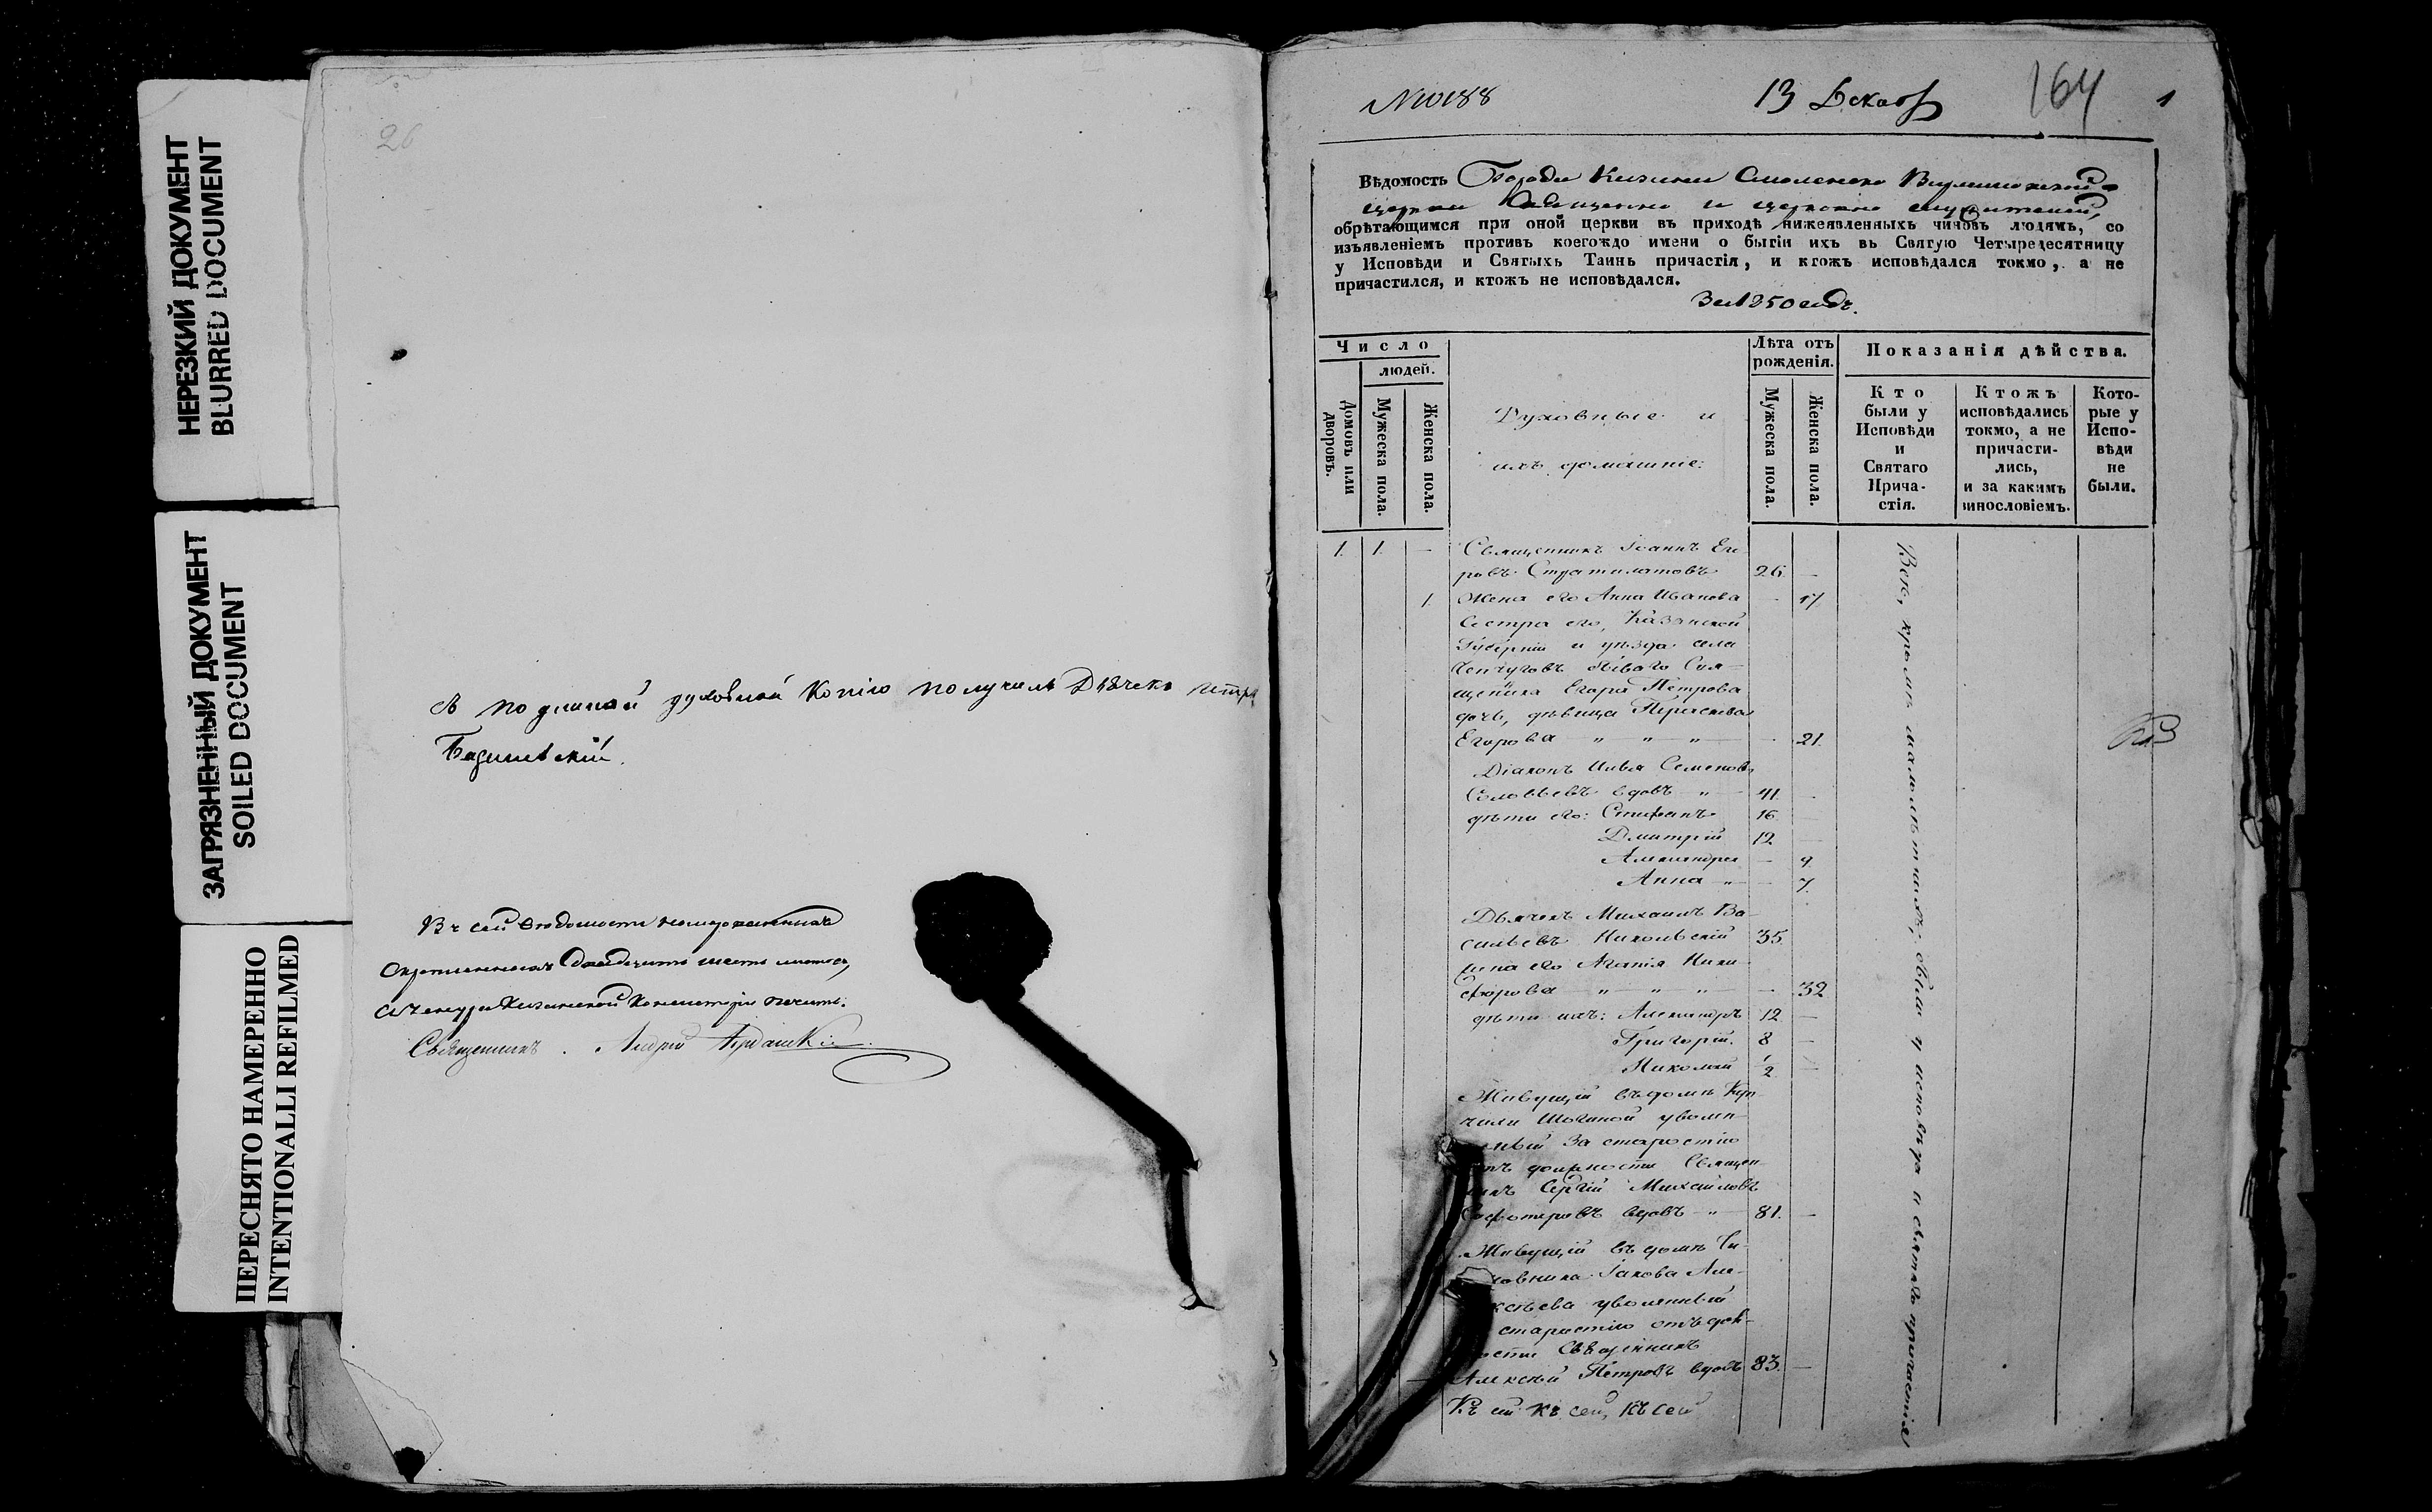 НЕРЕЗКИЙ ДОКУМЕНТ
BLURRED DOCUMENT
ЗАГРЯЗНЕННЫЙ ДОКУМЕНТ
SOILED DOCUMENT
ПЕРЕСНЯТО НАМЕРЕННО
INTENTIONALLI REFILMED
26
подлиной духовной копію получилъ Дьячекъ
Въ сей вѣдомости
листовъ,
Консисторіи
Священникъ Андрей
№ 10188
13 Декаб
164
1
Вѣдомость Города Казани Смоленско
церкви священно и церковно служителей,
обрѣтающимся при оной церкви въ приходѣ нижеявленныхъ чиновъ людямъ, со
изъявленіемъ противъ коегождо имени о бытіи ихъ въ Святую Четыредесятницу
у Исповѣди и Святыхъ Таинъ причастія, и ктожъ исповѣдался токмо, а не
причастился, и ктожъ не исповѣдался.
За 1850 годъ.
Число
людей.
Домовъ или дворовъ.
Мужеска пола.
Женска пола.
Духовные и
ихъ домашніе:
Лѣта отъ
рожденія.
Мужеска пола.
Женска пола.
Показанія дѣйства.
Кто
были у
Исповѣди
и
Святаго
Прича-
стія.
Ктожъ
исповѣдались
токмо, а не
причасти-
лись,
и за какимъ
винословіемъ.
Кото-
рые у
Испо-
вѣди
не
были.
1. 1. — Священникъ Іоаннъ Его
ровъ Стратилатовъ 26. —
1. Жена его Анна Иванова - 17.
Сестра его, Казанской
Губерніи и уѣзда села
бывшаго Свя-
щеника Егора Петрова
дочь, дѣвица
Егорова — „ — „ — „ - 21.
Діаконъ Илья Семеновъ
Соловьевъ вдовъ „ 41.
дѣти его: Стефанъ 16.
Дмитрій 12
Александра — 9.
Анна „ — 7.
Дьячекъ Михаилъ Ва-
сильевъ Никольскій 35.
жена его Агапія Ники-
форова — „ — „ — „ - 32
дѣти ихъ: Александръ 12 —
Григорій. 8 —
Николай 1/2 —
Живущій въ домѣ Куп-
чихи уволен-
ный за старостію
отъ должности Священ-
никъ Сергій Михайловъ
вдовъ „ 81. —
Живущій въ домѣ Чи-
новника Іакова Але-
ксѣева уволенный
старостію отъ долж-
ности Священникъ
Алексѣй Петровъ вдовъ 83. —
Къ сей къ сей, къ сей
Всѣ, кромѣ малолѣтнихъ, были у исповѣди и святаго причастія